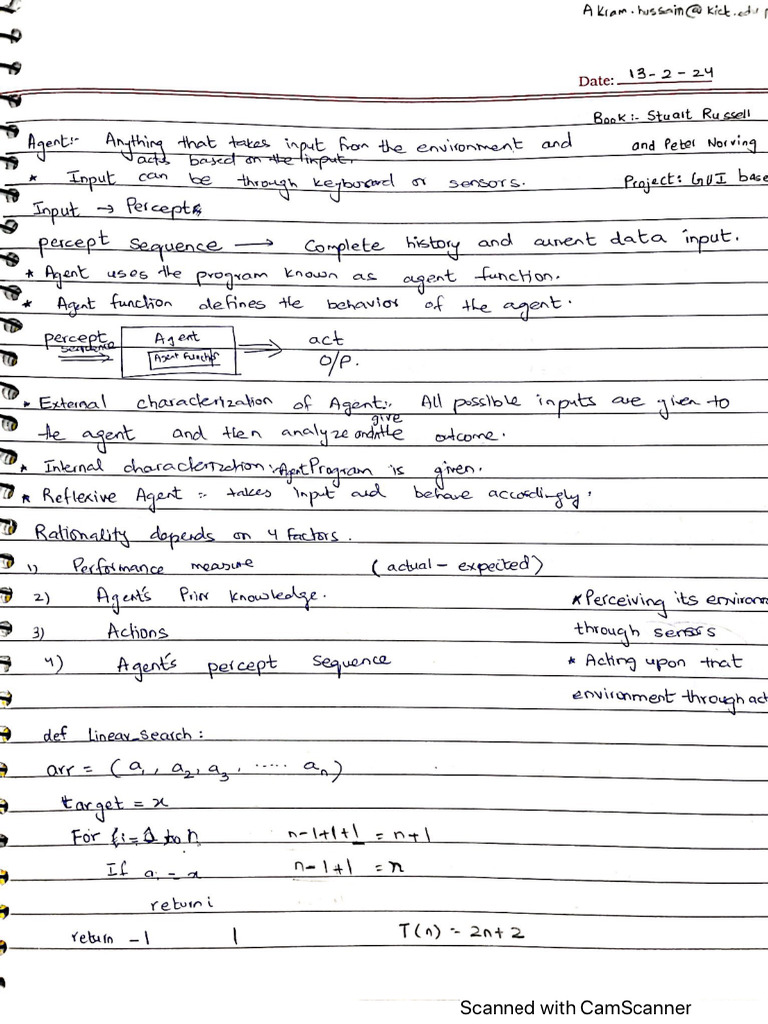 Akram.hussain@kict.edu.p
Date: 13-2-24
Book:- Stuart Russell
and Peter Norving
Project: GUI base
Agent:- Anything that takes input from the environment and
acts based on the input.
* Input can be through keyboard or sensors.
Input → Percepts
percept sequence → Complete history and current data input.
* Agent uses the program known as agent function.
* Agent function defines the behavior of the agent.
percept sequence
Agent
Agent Function
act
O/P.
* External characterization of Agent:- All possible inputs are given to
the agent and then analyze and give the outcome.
* Internal characterization:- Agent Program is given.
* Reflexive Agent :- takes input and behave accordingly.
Rationality depends on 4 factors.
1) Performance measure (actual - expected)
2) Agent's Prior knowledge.
3) Actions
4) Agent's percept sequence
* Perceiving its environm
through sensors
* Acting upon that
environment through act
def linear_search:
arr = (a1, a2, a3, ..... an)
target = x
For i=1 to n n-1+1+1 = n+1
If ai = x n-1+1 = n
return i
return -1 1 T(n) = 2n+2
Scanned with CamScanner